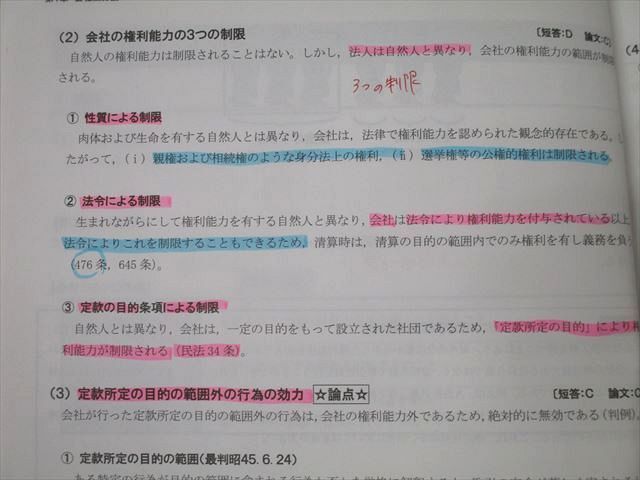 （2）会社の権利能力の3つの制限
〔短答：D　論文：C〕
自然人の権利能力は制限されることはない。しかし，法人は自然人と異なり，会社の権利能力の範囲が制限
される。
3つの制限
① 性質による制限
肉体および生命を有する自然人とは異なり，会社は，法律で権利能力を認められた観念的存在である。し
たがって，(ⅰ) 親権および相続権のような身分法上の権利，(ⅱ) 選挙権等の公権的権利は制限される。
② 法令による制限
生まれながらにして権利能力を有する自然人と異なり，会社は法令により権利能力を付与されている以上
法令によりこれを制限することもできるため，清算時は，清算の目的の範囲内でのみ権利を有し義務を負
（476 条，645 条）。
③ 定款の目的条項による制限
自然人とは異なり，会社は，一定の目的をもって設立された社団であるため，「定款所定の目的」により権
利能力が制限される（民法 34 条）。
（3）定款所定の目的の範囲外の行為の効力　☆論点☆
〔短答：C　論文：
会社が行った定款所定の目的の範囲外の行為は，会社の権利能力外であるため，絶対的に無効である（判例）。
① 定款所定の目的の範囲（最判昭45. 6. 24）
（4